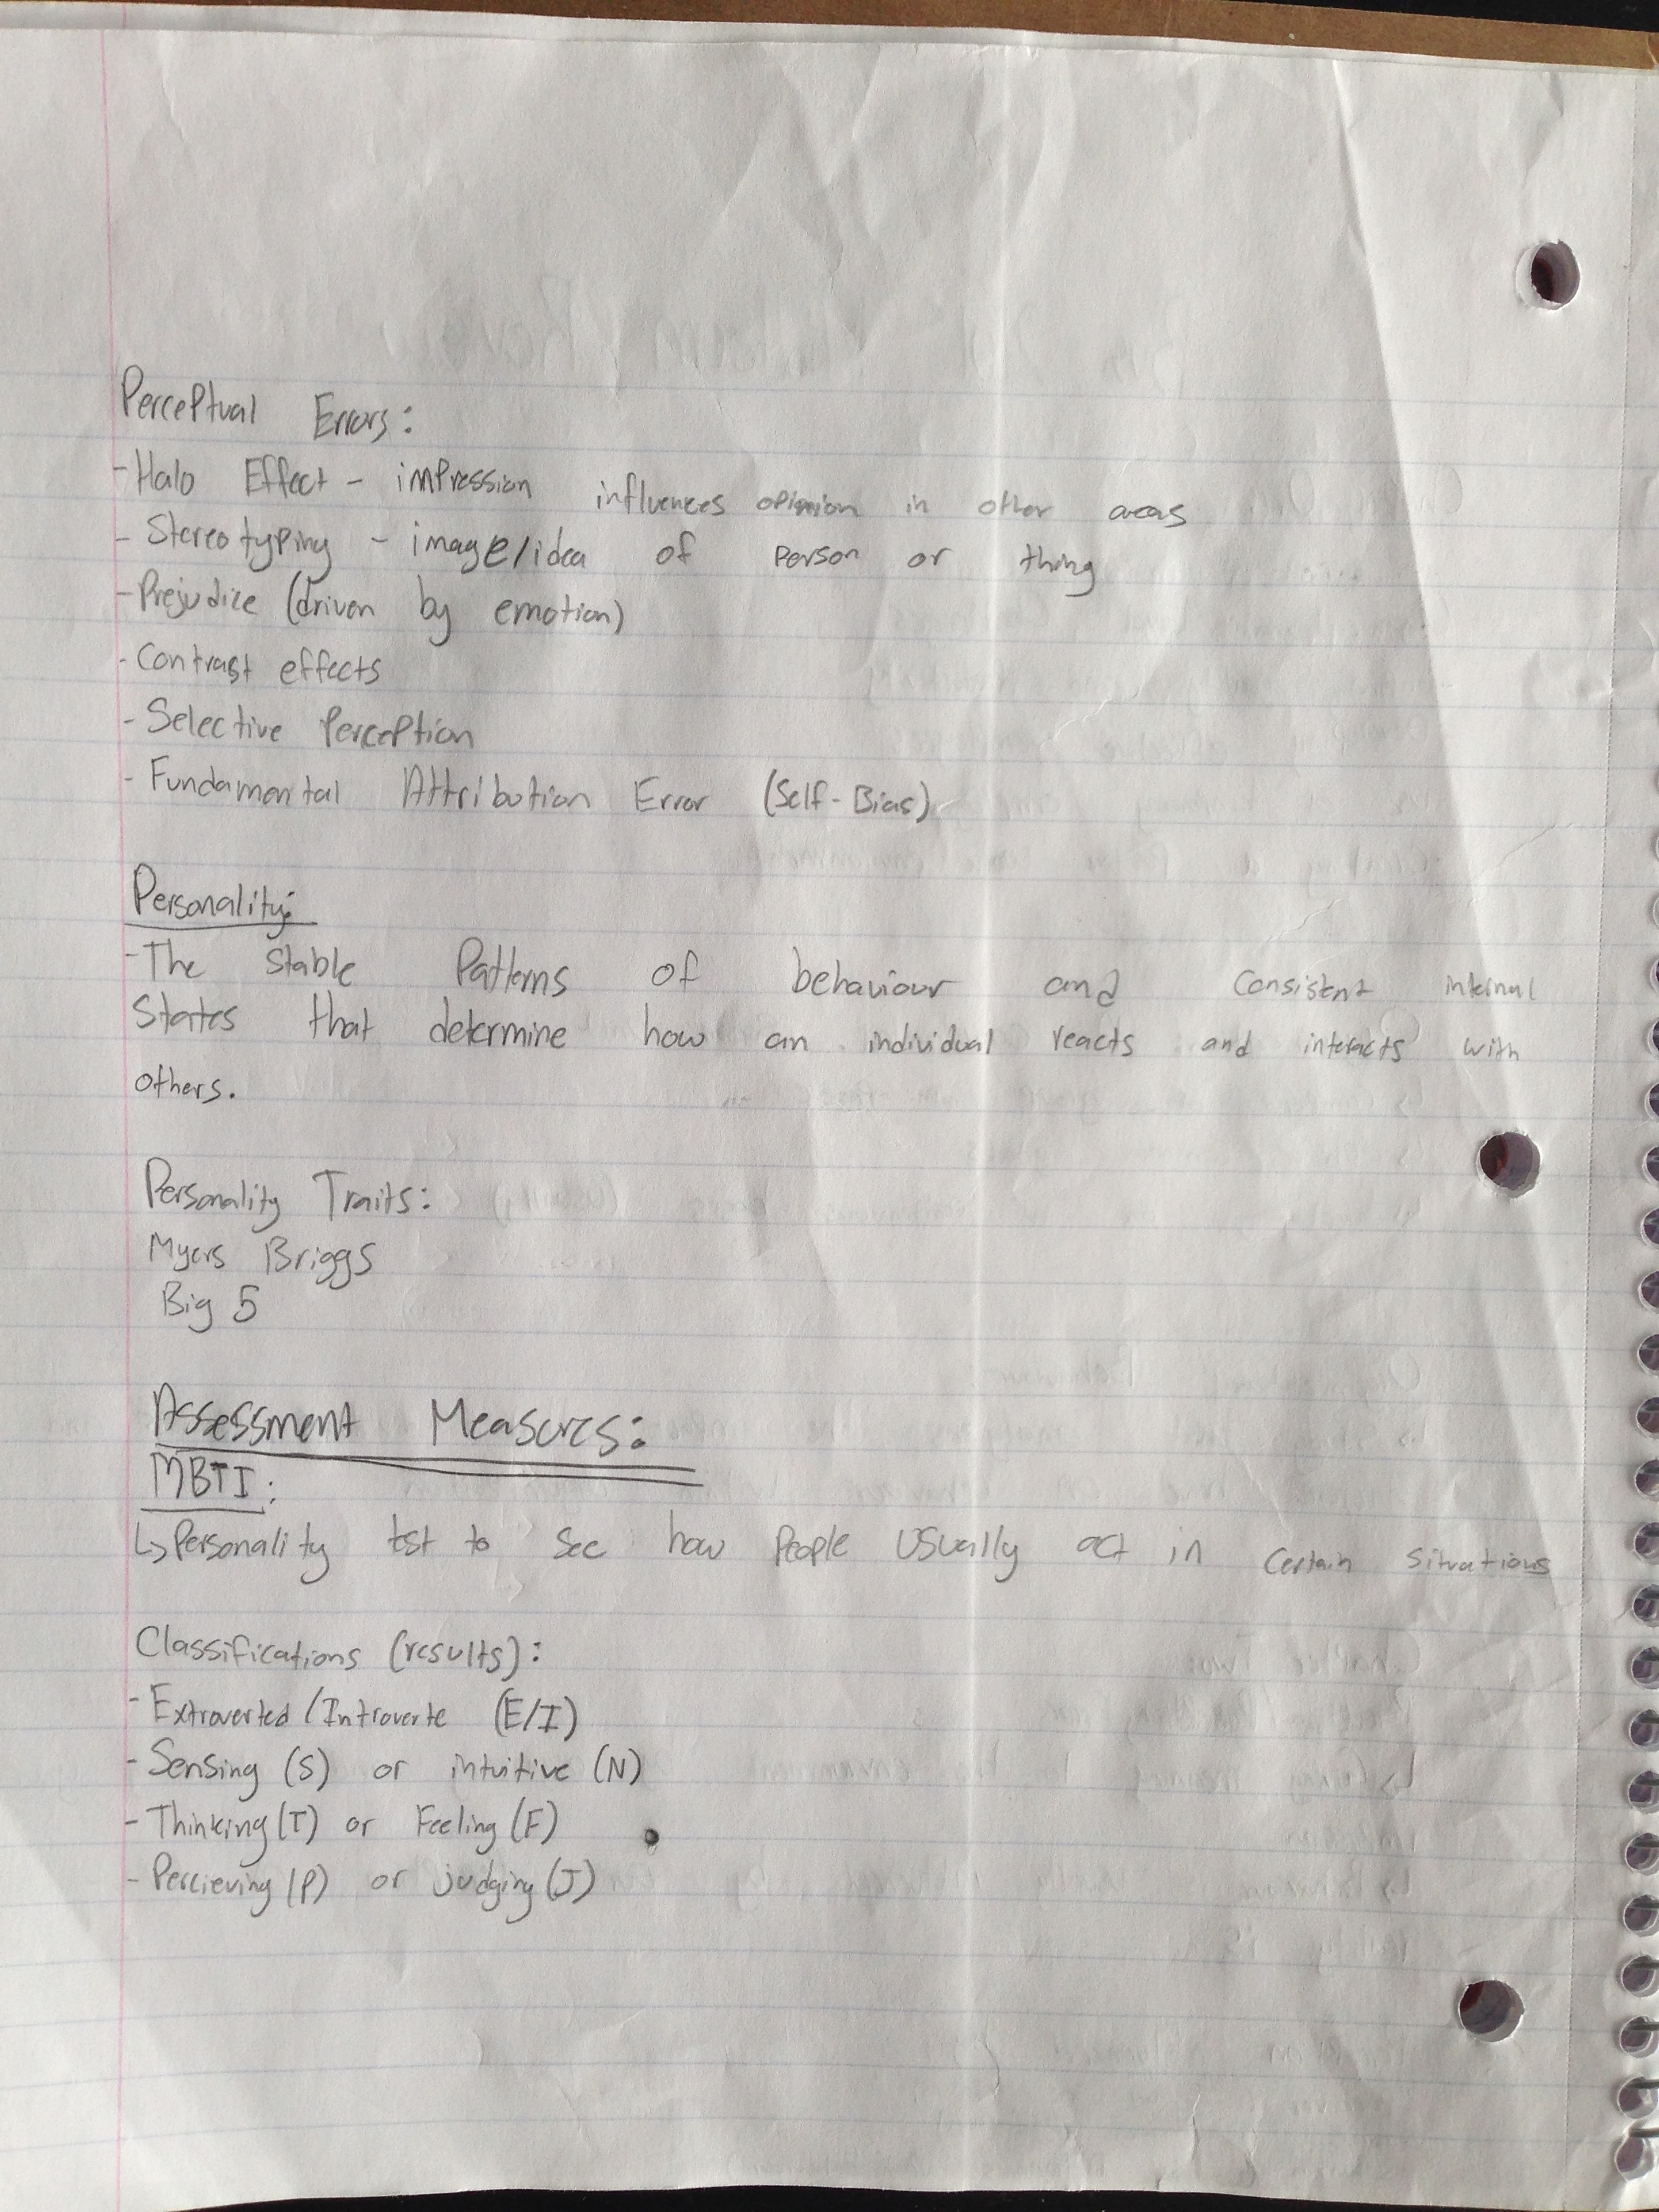 Perceptual Errors:
- Halo Effect - impression influences opinion in other areas
- Stereotyping - image/idea of person or thing
- Prejudice (driven by emotion)
- Contrast effects
- Selective Perception
- Fundamental Attribution Error (Self-Bias)
Personality:
- The stable Patterns of behaviour and consistent internal
States that determine how an individual reacts and interacts with
others.
Personality Traits:
Myers Briggs
Big 5
Assessment Measures:
MBTI:
↳ Personality test to see how People usually act in certain situations
Classifications (results):
- Extroverted/Introverte (E/I)
- Sensing (S) or intuitive (N)
- Thinking (T) or Feeling (F)
- Percieving (P) or judging (J)